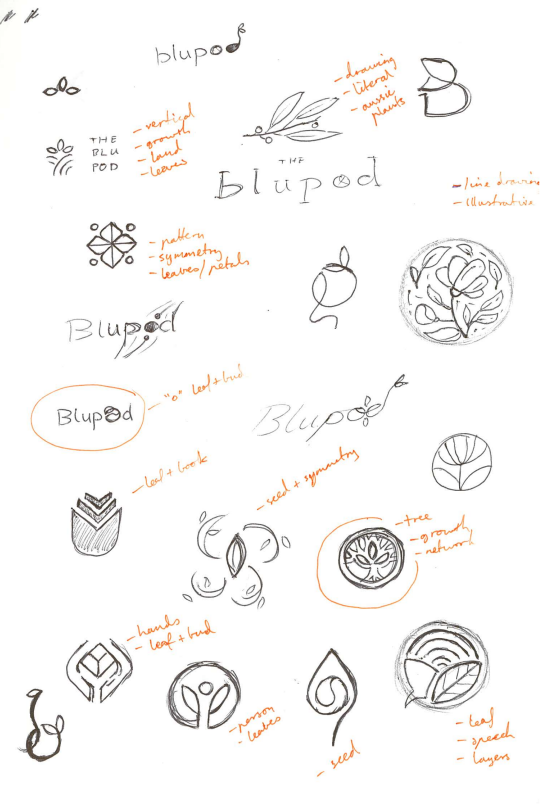 blupod
- drawing
- literal
- aussie
plants
- vertical
- growth
- land
- leaves
THE
BLU
POD
THE
blupod
- line drawing
- illustrative
- pattern
- symmetry
- leaves/petals
Blupod
Blupod
- "o" leaf + bud
Blupod
- leaf + book
- seed + symmetry
- tree
- growth
- network
- hands
- leaf + bud
- person
- leaves
- seed
- leaf
- speech
- layers